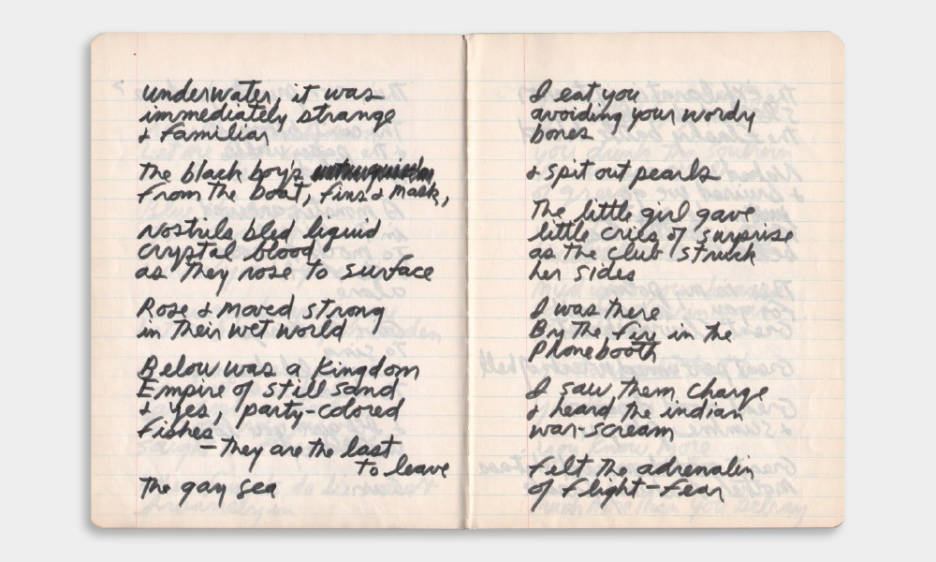 underwater, it was
immediately strange
& familiar
The black boy's
from the boat, fins & mask,
Nostrils bled liquid
crystal blood
as they rose to surface
Rose & moved strong
in their wet world
Below was a Kingdom
Empire of still sand
& yes, party-colored
fishes
– they are the last
to leave
The gay sea
I eat you
avoiding your wordy
bones
& spit out pearls
The little girl gave
little cries of surprise
as the club struck
her sides
I was there
By the fir in the
Phonebooth
I saw them charge
& heard the indian
war-scream
felt the adrenalin
of flight-fear